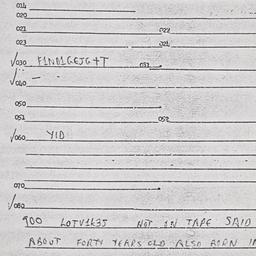 014
020
021 022
023 024
√030 F1ND1GEJG+T 031
√040 -
050
051 052
√060 YID
070
√080
900 LOTV1K35 NOT IN TAPE SAID
ABOUT FORTY YEARS OLD ALSO BORN I